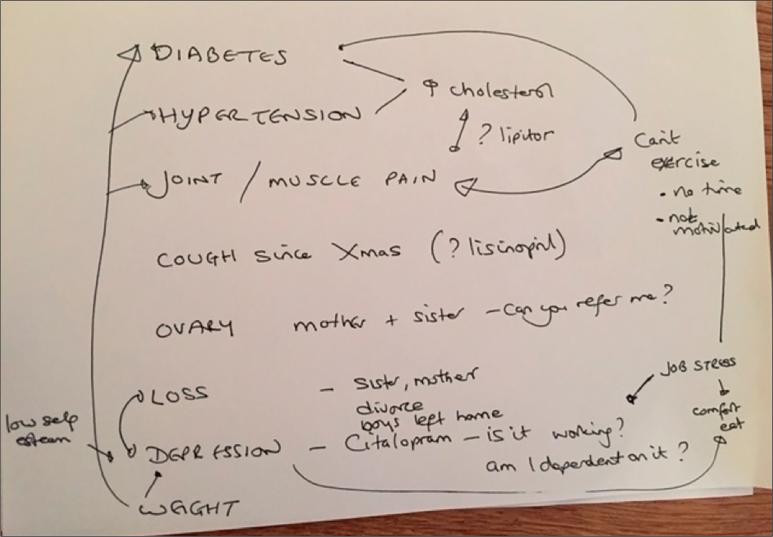 DIABETES
↑ cholesterol
HYPERTENSION
? lipitor
Can't
exercise
• no time
• not
motivated
JOINT / MUSCLE PAIN
COUGH since Xmas (? lisinopril)
OVARY mother + sister – Can you refer me?
JOB STRESS
comfort
eat
LOSS – Sister, mother
divorce
boys left home
low self
esteem
DEPRESSION – Citalopram – is it working?
am I dependent on it?
WEIGHT